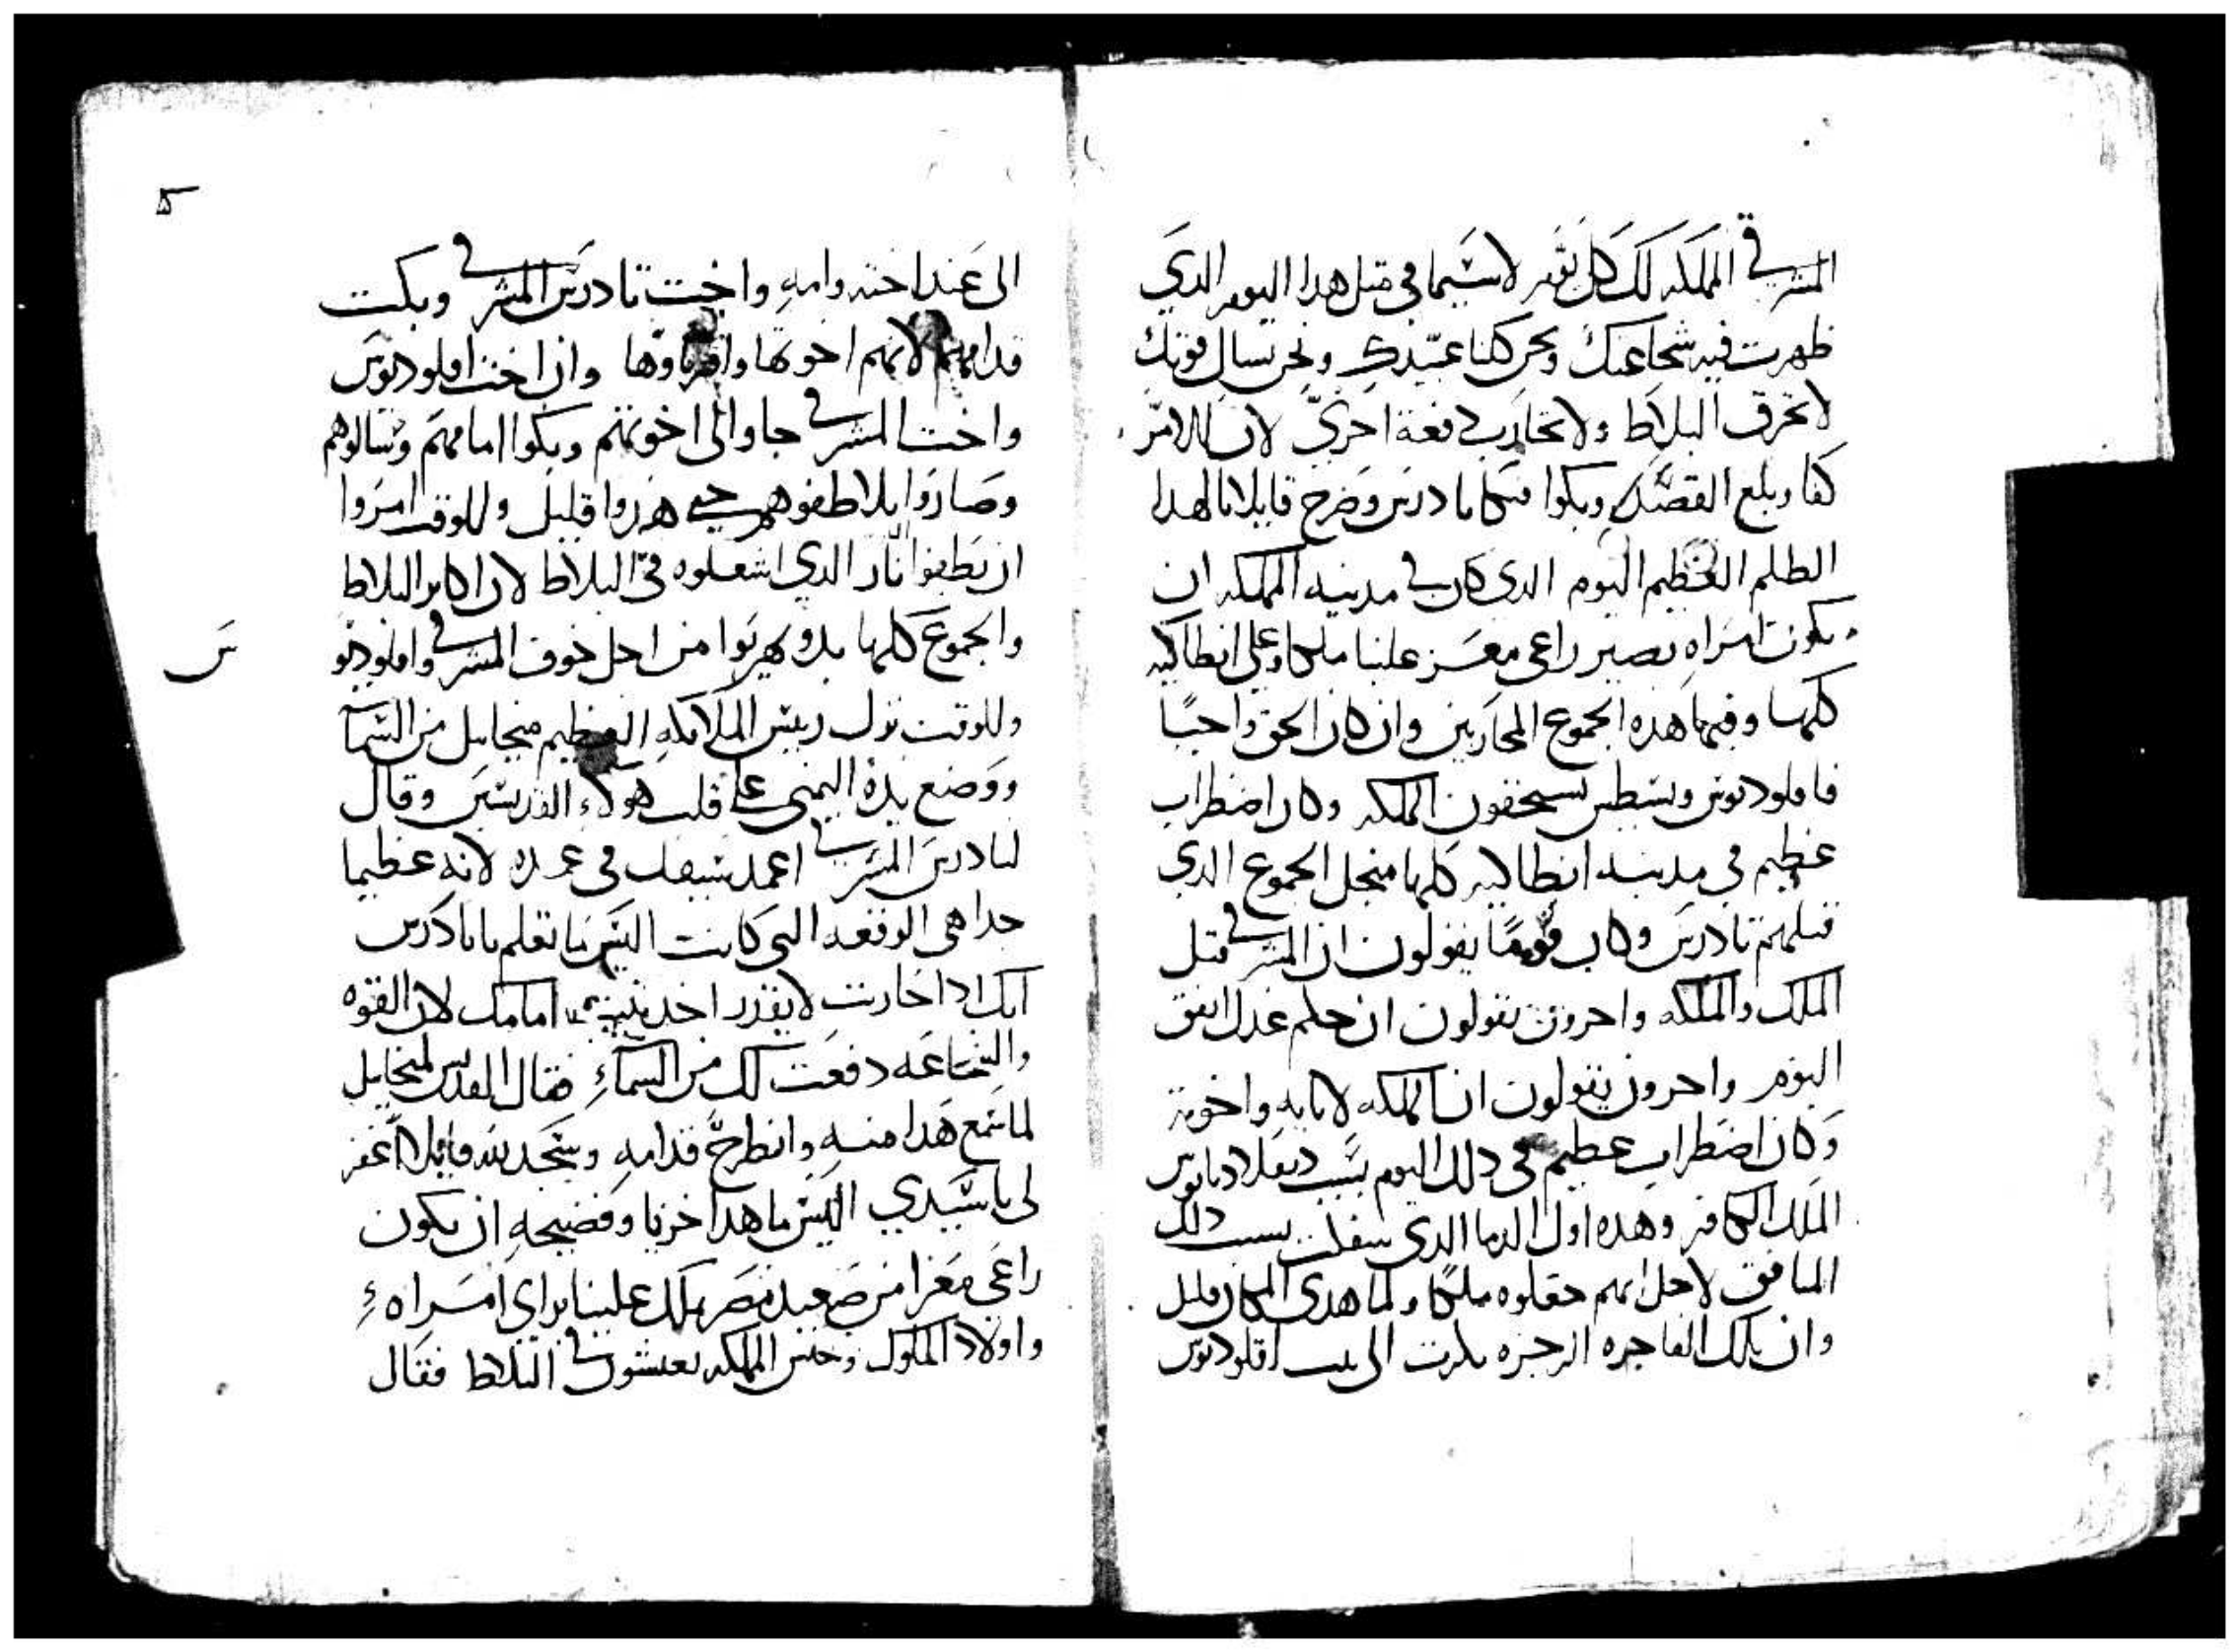 المشرقي المملكه لك كل يوم لاسيما في مثل هدا اليوم الدي
ظهرت فيه شجاعتك ونحن كلنا عبيدك ونحن نسال قوتك
لا تحرق البلاط ولا تحارب دفعة اخري لان الامر
كفا وبلغ القصد وبكوا فبكا تادرس وصرخ قايلا يا لهدا
الظلم العظيم اليوم الدي كان في مدينه المملكه ان
يكون امراه تصير راعي معز علينا ملكا وعلي انطاكيه
كلها وفيها هده الجموع المحاربين وان كان الحق واجبًا
فاقلوديوس وبسطس يستحقون المملكه وكان اضطراب
عظيم في مدينه انطاكيه كلها منجل الجموع الدي
قتلهم تادرس وكان قومًا يقولون ان المشرقي قتل
الملك والملكه واخرون يقولون ان حكم عدل اتفق
اليوم واخرون يقولون ان المملكه لابايه واخوته
وكان اضطراب عظيم في دلك اليوم بسبب دقلاديانوس
الملك الكافر وهده اول الدما الدي سفكت بسبب دلك
المنافق لاجل انهم جعلوه ملكا ولما هدي المكان قليل
وان تلك الفاجره الزجره بكرت الي بيت اقلوديوس
ه
الى عند اخته وامه واخت تادرس المشرقي وبكت
قدامهم لانهم اخوتها واقرباوها وان اخت اقلوديوس
واخت المشرقي جاوا الى اخوتهم وبكوا امامهم وسالوهم
وصاروا يلاطفوهم حتي هدوا قليل وللوقت امروا
ان يطفوا النار الدي اشعلوه في البلاط لان اكابر البلاط
والجموع كلها بدو يهربوا من اجل خوف المشرقي واقلوديو
س
وللوقت نزل رييس الملايكه العظيم ميخاييل من السما
ووضع يده اليمنى على قلب هولاء القديسين وقال
لتادرس المشرقي اغمد سيفك في غمده لانه عظيما
جدا هي الوقعه التي كانت اليس ما تعلم يا تادرس
انك ادا حاربت لا يقدر احد يثبت امامك لان القوه
والشجاعه دفعت لك من السماء فقال القديس لميخاييل
لما سمع هدا منه وانطرح قدامه وسجد له قايلا اغفر
لي يا سيدي اليس ما هدا خزيا وفضيحه ان يكون
راعي معزا من صعيد مصر يملك علينا براي امراه
واولاد الملوك وجنس المملكه يعيشون في البلاط فقال